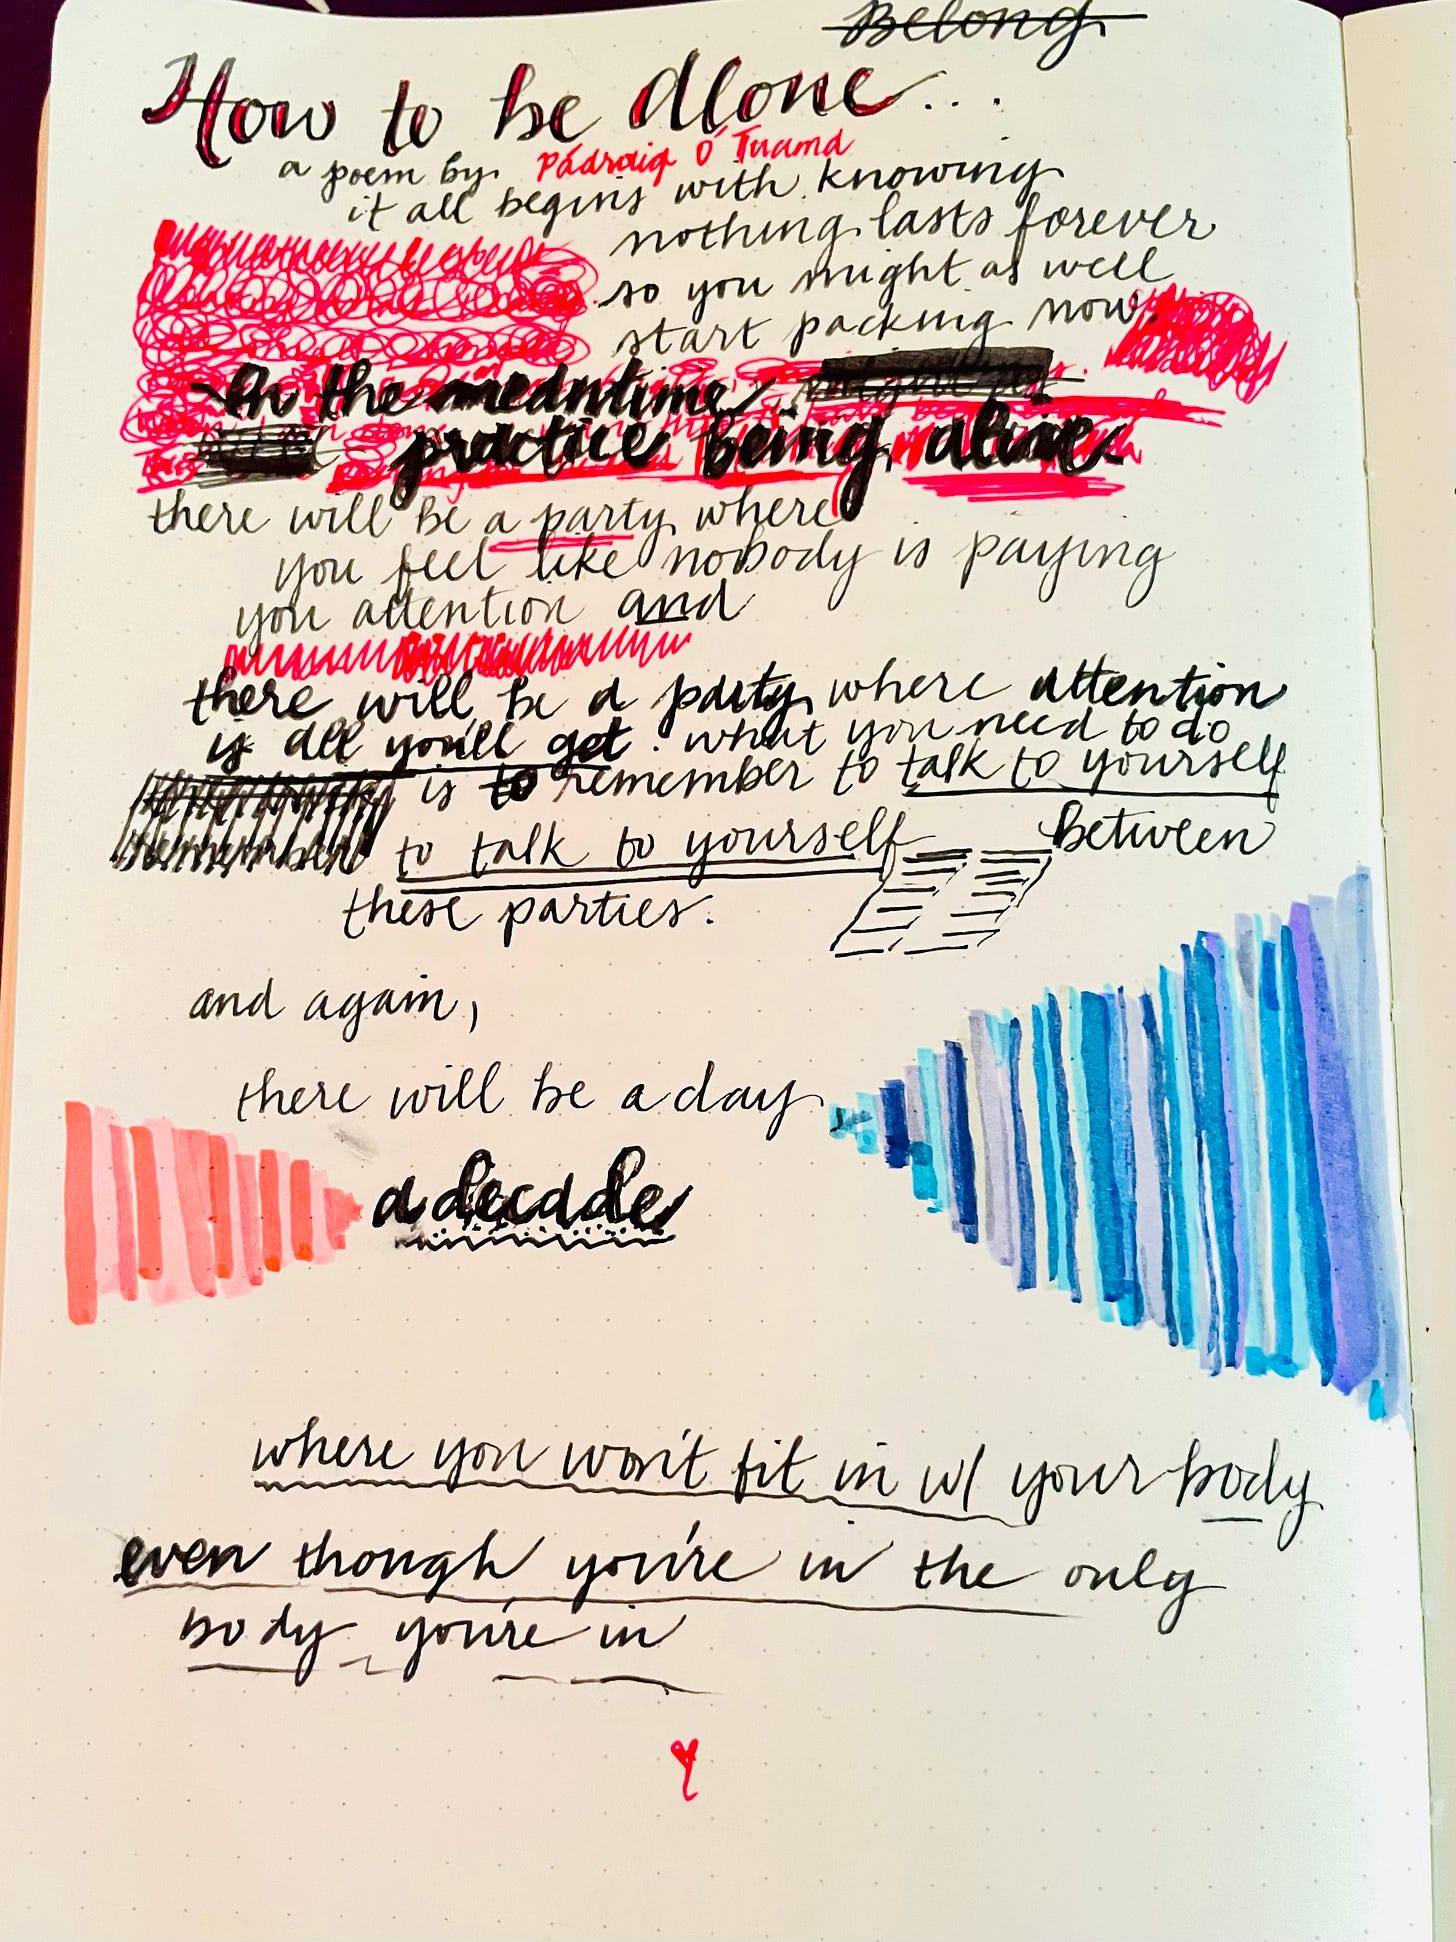 Belong
How to be alone...
a poem by: Pádraig Ó Tuama
it all begins with knowing
nothing lasts forever
so you might as well
start packing now.
In the meantime
practice being alive
there will be a party where
you feel like nobody is paying
you attention and
there will be a party where attention
is all you'll get. what you need to do
is to remember to talk to yourself
remember
to talk to yourself between
these parties.
and again,
there will be a day
a decade
where you won't fit in w/ your body
even though you're in the only
body you're in